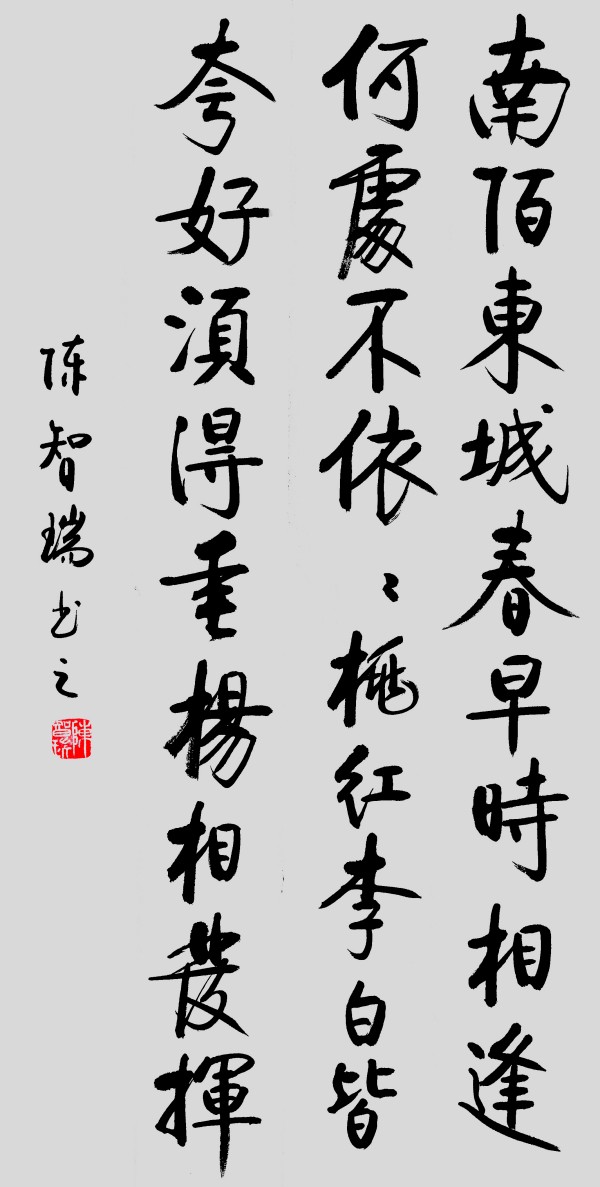 南陌東城春早時相逢
何處不依〻桃紅李白皆
夸好須得垂楊相發揮
陈智瑞书之